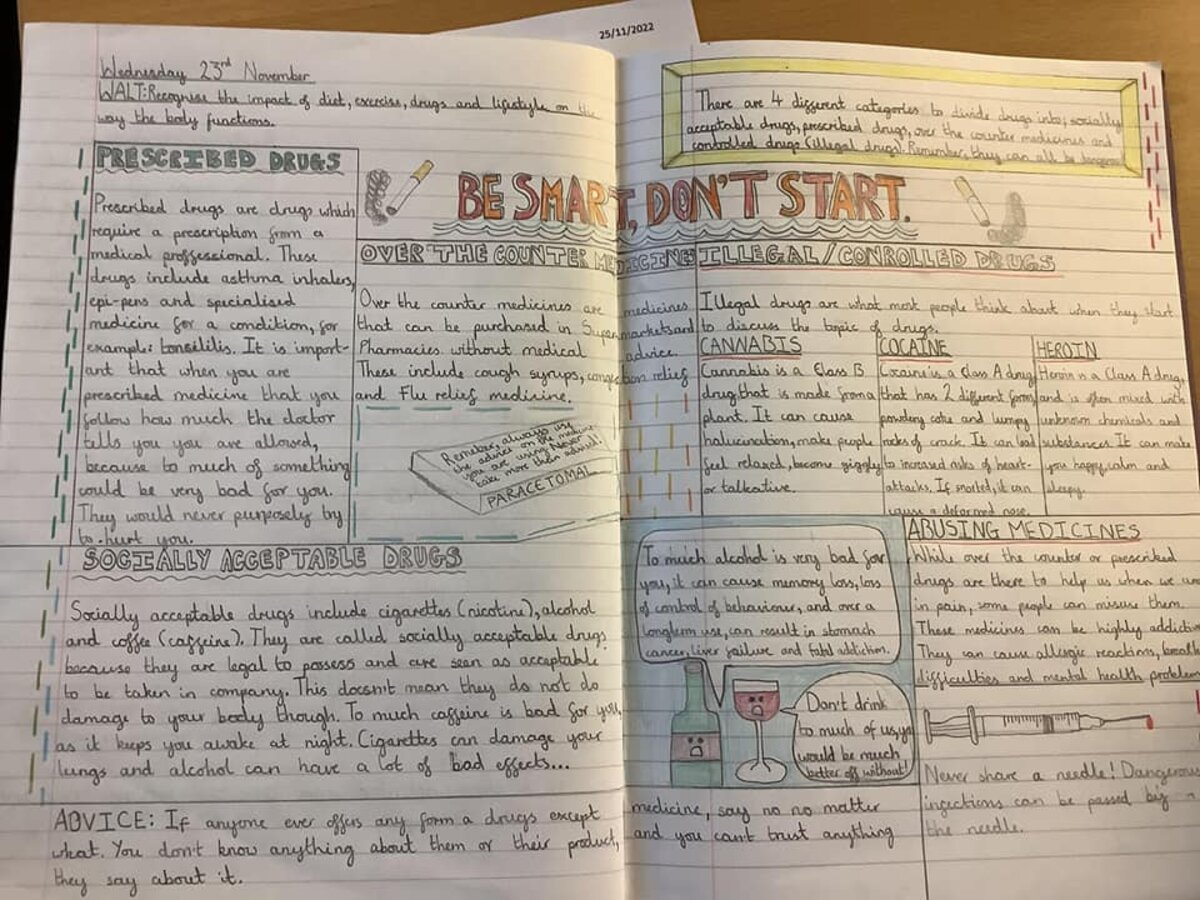 25/11/2022
Wednesday 23rd November
WALT: Recognise the impact of diet, exercise, drugs and lifestyle on the
way the body functions.
There are 4 different categories to divide drugs into; socially
acceptable drugs, prescribed drugs, over the counter medicines and
controlled drugs (illegal drugs). Remember, they can all be dangerous
BE SMART, DON'T START.
PRESCRIBED DRUGS
Prescribed drugs are drugs which
require a prescription from a
medical proffessional. These
drugs include asthma inhalers,
epi-pens and specialised
medicine for a condition, for
example: tonsililis. It is import-
ant that when you are
prescribed medicine that you
follow how much the doctor
tells you you are allowed,
because to much of something
could be very bad for you.
They would never purposely try
to hurt you.
OVER THE COUNTER MEDICINES
Over the counter medicines are medicines
that can be purchased in Supermarkets and
Pharmacies without medical advice.
These include cough syrups, congestion relief
and Flu relief medicine.
Remember, always use
the advice on the medicine
you are using. Never
take more then advised!
PARACETOMAL
ILLEGAL/CONROLLED DRUGS
Illegal drugs are what most people think about when they start
to discuss the topic of drugs.
CANNABIS
Cannabis is a Class B
drug, that is made from a
plant. It can cause
halucination, make people
feel relaxed, become giggly
or talkative.
COCAINE
Cocaine is a Class A drug
that has 2 different forms,
powdery coke and lumpy
rocks of crack. It can lead
to increased risks of heart-
attacks. If snorted, it can
cause a deformed nose.
HEROIN
Heroin is a Class A drug,
and is often mixed with
unknown chemicals and
substances. It can make
you happy, calm and
sleepy.
SOCIALLY ACCEPTABLE DRUGS
Socially acceptable drugs include cigarettes (nicotine), alcohol
and coffee (caffeine). They are called socially acceptable drugs
because they are legal to possess and are seen as acceptable
to be taken in company. This doesn't mean they do not do
damage to your body though. To much caffeine is bad for you,
as it keeps you awake at night. Cigarettes can damage your
lungs and alcohol can have a lot of bad effects...
To much alcohol is very bad for
you, it can cause memory loss, loss
of control of behaviour, and over a
longterm use, can result in stomach
cancer, liver failure and fatal addiction.
Don't drink
to much of us, yo
would be much
better off without!
ABUSING MEDICINES
While over the counter or prescribed
drugs are there to help us when we are
in pain, some people can misuse them.
These medicines can be highly addictiv
They can cause allergic reactions, breath
difficulties and mental health problem
Never share a needle! Dangerous
infections can be passed by
the needle.
ADVICE: If anyone ever offers any form a drugs except medicine, say no no matter
what. You don't know anything about them or their product, and you can't trust anything
they say about it.